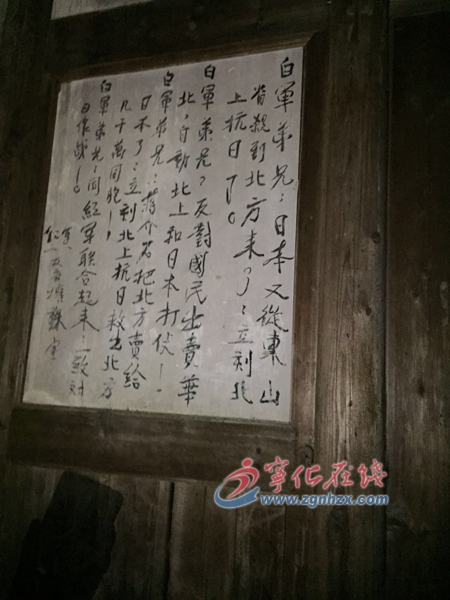 白軍弟兄：日本又從東山
省親到北方来了：立刻北
上抗日了。
白軍弟兄？反對國民出賣華
北，自動北上和日本打仗！
白軍弟兄：蒋介石把北方賣給
日本了：立刻北上抗日救出北方
几千萬同胞！
白軍弟兄：同紅軍联合起来：一致对
日作战！
宁化在线
www.zgnhzx.com